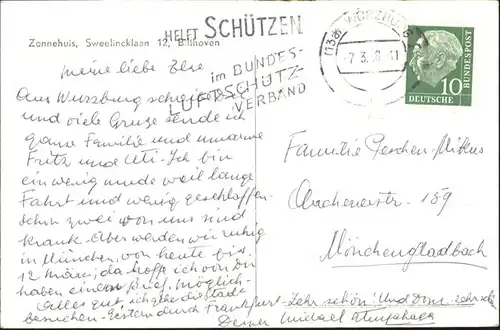 HELFT SCHÜTZEN
im BUNDES-
LUFTSCHUTZ-
VERBAND
(13a) WÜRZBURG
-7.3. 11
DEUTSCHE BUNDESPOST
10
Zonnehuis, Sweelincklaan 12, Bilthoven
meine liebe
Aus Würzburg
und viele Grüße sende ich
ganze Familie und umarme
Fritz und Uti. Ich bin
ein wenig müde weil lange
Fahrt und wenig geschlafen.
Schon zwei von uns sind
krank. Aber werden wir ruhig
in München, von heute bis
12 März; da hoffe ich von Dir
haben einen Brief. möglich-
Alles gut, ich gehe die Stadt
besuchen. Gestern durch Frankfurt - Sehr schön! Und Dome - sehr sch
Deiner
Familie
Aachenerstr. 159
Mönchengladbach